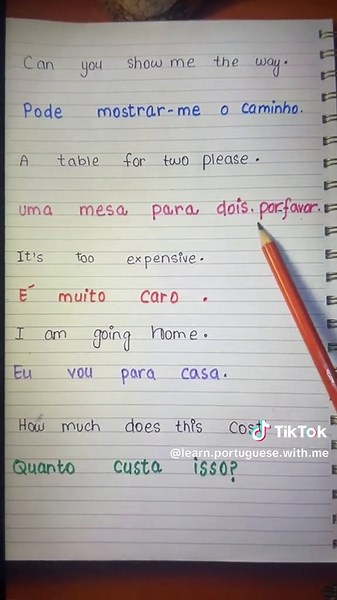 Can you show me the way.
Pode mostrar-me o caminho.
A table for two please.
uma mesa para dois. por favor.
It's too expensive.
É muito caro .
I am going home.
Eu vou para casa.
How much does this cost
TikTok
@learn.portuguese.with.me
Quanto custa isso?